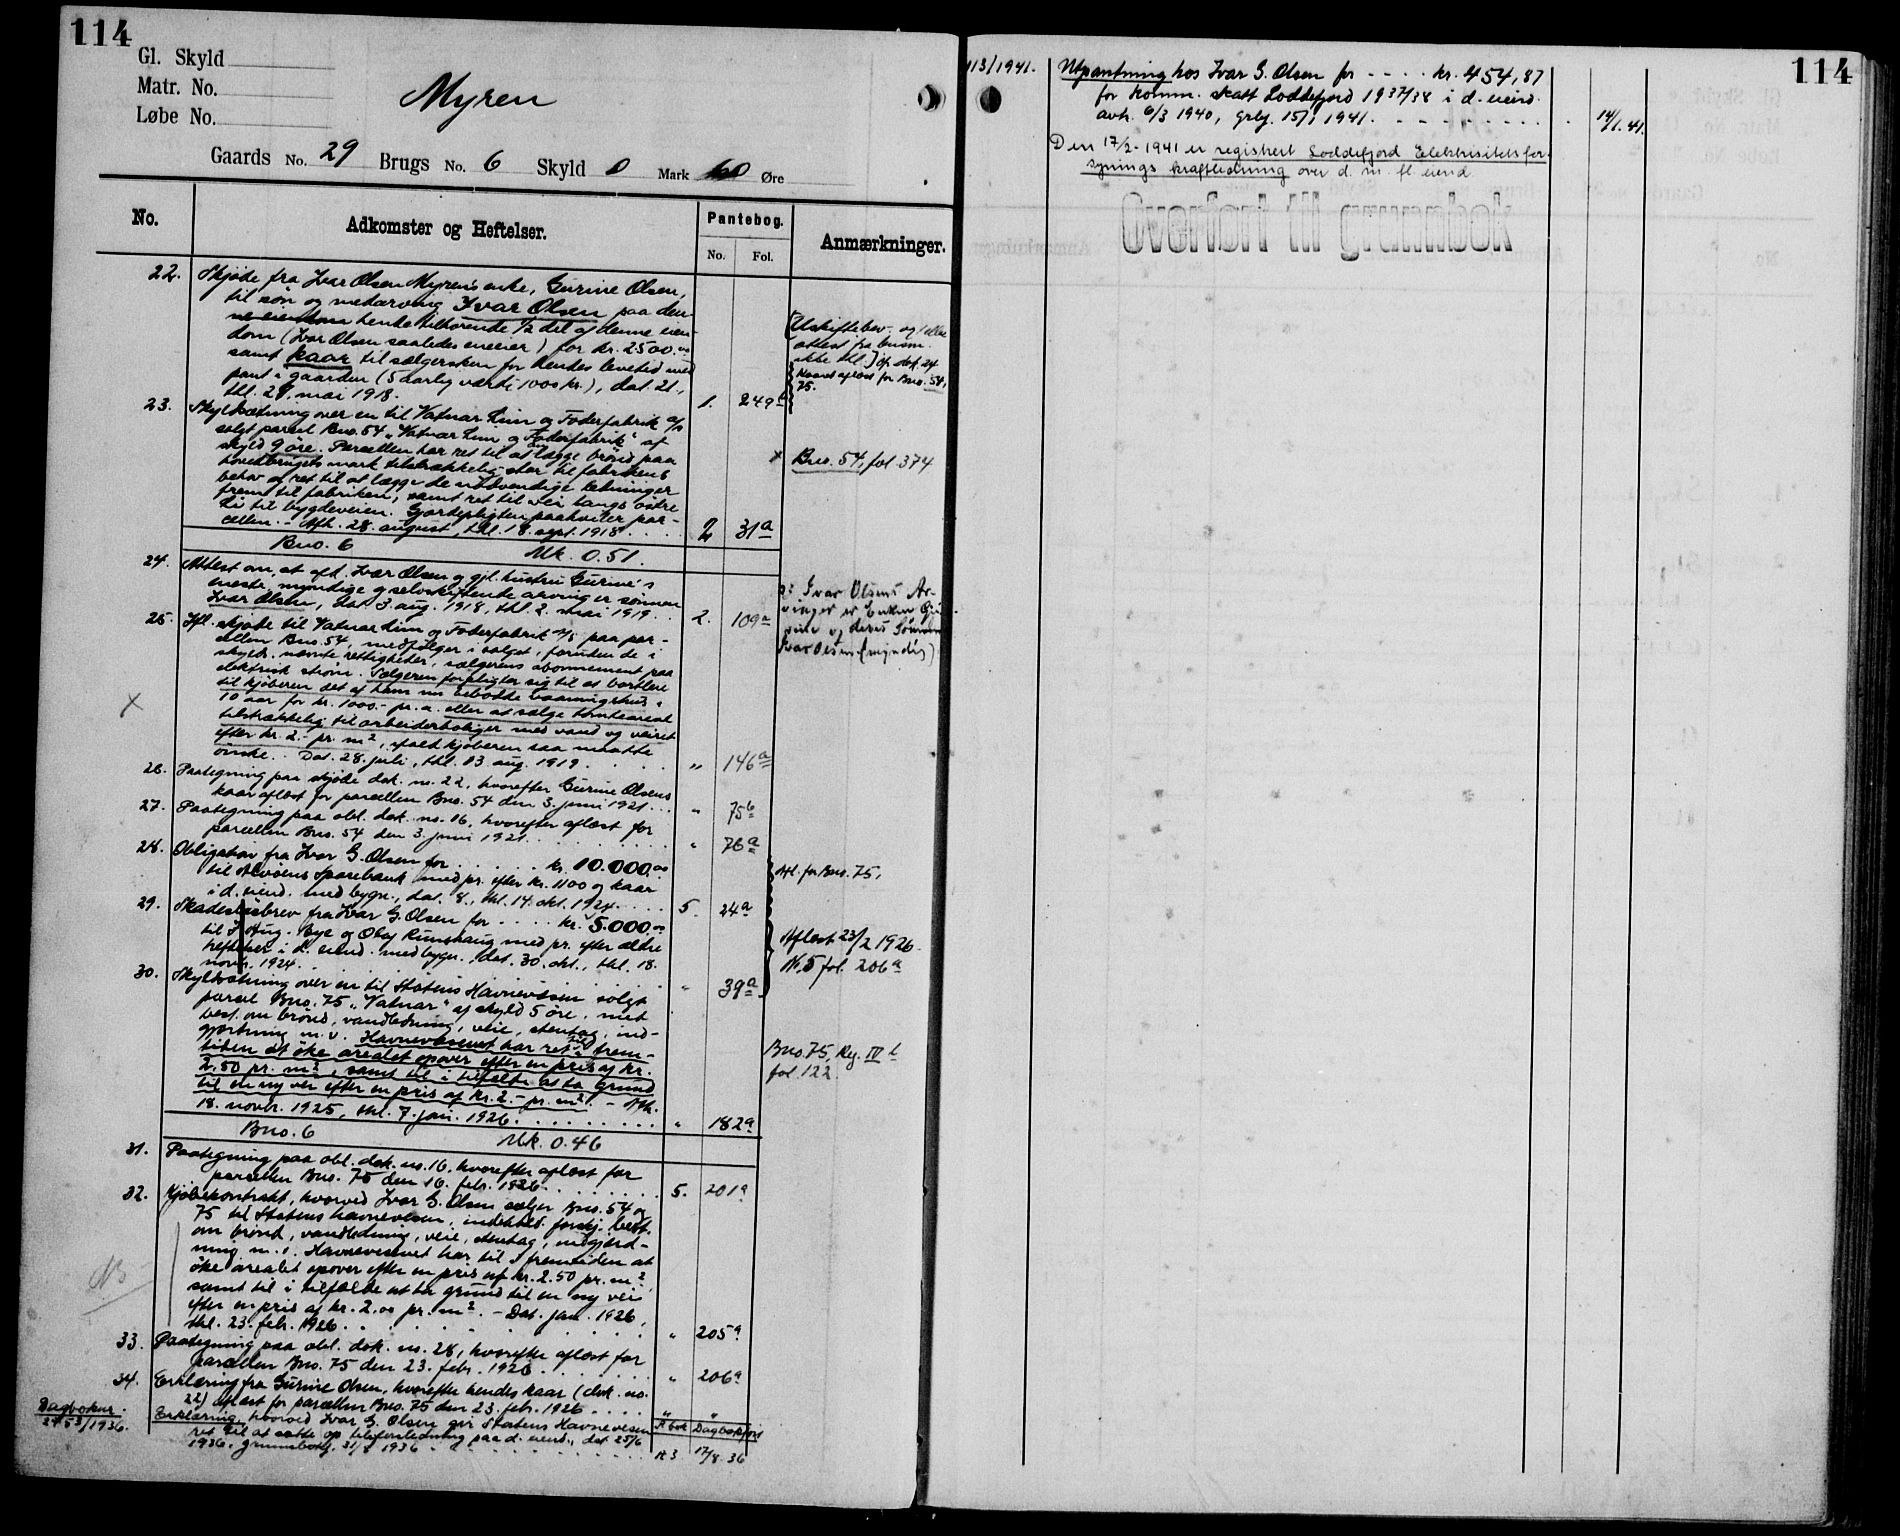 114
Gl. Skyld
Matr. No.
Løbe No.
Myren
Gaards No. 29 Brugs No. 6 Skyld 0 Mark 60 Øre
No. Adkomster og Heftelser. Pantebog. Anmærkninger.
No. Fol.
22. Skjøde fra Ivar Olsen Myrens enke, Gurine Olsen,
til søn og medarving Ivar Olsen paa den
hende tilhørende 1/2 del af denne eien-
dom (Ivar Olsen saaledes eneeier) for kr. 2500.00
samt kaar til sælgersken for hendes levetid med
pant i gaarden (5 aarlig værdi 1000 kr.), dat. 21.,
thl. 27. mai 1918. 1. 249b
[Uskiftebev. og
attest fra
ikke thl.] cfr. dok. 24
Kaaret aflæst for Bno. 54,
75.
23. Skyldsætning over en til Vatnar Lim og Foderfabrik a/s
solgt parcel Bno. 54 "Vatnar Lim og Foderfabrik" af
skyld 9 øre. Parcellen har ret til at lægge brønd paa
hovedbrugets mark tilstrækkelig stor til fabrikens
behov og ret til at lægge de nødvendige ledninger
frem til fabriken, samt ret til vei langs østre
side til bygdeveien. Gjerdepligten paahviler par-
cellen. - Afh. 28. august, thl. 18. sept. 1918 2 31a
x Bno. 54, fol 374
Bno. 6 Mk. 0.51.
24. Attest om, at afd. Ivar Olsen og gjl. hustru Gurine's
eneste, myndige og selvskiftende arving er sønnen
Ivar Olsen, dat 3. aug. 1918, thl. 2. mai 1919 2. 109a
o: Ivar Olsens Ar-
vinger er Enken Gu-
rine og deres Sønn
Ivar Olsen (myndig)
25. Hjl. skjøde til Vatnar Lim og Foderfabrik a/s paa par-
cellen Bno. 54, medfølger i salget, foruden de i
skyldt. nævnte rettigheter, sælgerens abonnement paa
elektrisk strøm. Sælgeren forpligter sig til at bortleie
til kjøberen det af ham nu bebodde vaaningshus i
10 aar for kr. 1000.- pr. a. eller at sælge tomteareal
tilstrækkelig til arbeiderboliger med vand og veiret
efter kr. 2.- pr. m2, ifald kjøberen saa maatte
ønske. Dat. 28. juli, thl. 13 aug. 1919. " 146a
x
26. Paategning paa skjøde dok. no. 22, hvorefter Gurine Olsens
kaar aflæst for parcellen Bno. 54 den 3. juni 1921 " 75b
27. Paategning paa obl. dok. no. 16, hvorefter aflæst for
parcellen Bno. 54 den 3. juni 1921. " 76a
28. Obligation fra Ivar G. Olsen for kr. 10.000.00
til Alvøens Sparebank med pr. efter kr. 1100 og kaar
i d. eiend. med bygn., dat. 8., thl. 14. okt. 1924. 5. 24a
Afl. for Bno. 75,
29. Skadesløsbrev fra Ivar G. Olsen for kr. 5.000.00
til J. Aug. Bye og Olaf Runshaug med pr. efter ældre
heftelser i d. eiend. med bygn., dat. 30. okt., thl. 18.
novbr. 1924. " 39a
Aflæst 23/2 1926.
N. 5 fol. 206a
30. Skyldsætning over en til Statens Havnevæsen solgt
parcel Bno. 75 "Vatnar" af skyld 5 øre, med
best. om brønd, vandledning, veie, stentag, ind-
gjærdning m. v. Havnevæsenet har ret til i frem-
tiden at øke arealet opover efter en pris af kr.
2.50 pr. m2, samt til i tilfælde at ta grund
til en ny vei efter en pris af kr. 2.- pr. m2. - Afh.
18. novbr. 1925, thl. 7. jan. 1926 " 182a
Bno. 75, Reg. IV b
fol. 122.
Bno. 6 Mk. 0.46
31. Paategning paa obl. dok. no. 16, hvorefter aflæst for
parcellen Bno. 75 den 16. febr. 1926 5. 201a
32. Kjøbekontrakt, hvorved Ivar G. Olsen sælger Bno. 54 og
75 til Statens havnevesen, indehold. forskj. best.
om brønd, vandledning, veie, stentag, indgjærd-
ning m. v. Havnevæsenet har til i fremtiden at
øke arealet opover efter en pris af kr. 2.50 pr. m2
samt til i tilfælde at ta grund til en ny vei
efter en pris af kr. 2.00 pr. m2. - Dat. jan. 1926,
thl. 23. febr. 1926. " 205a
NB
33. Paategning paa obl. dok. no. 28, hvorefter aflæst for
parcellen Bno. 75 den 23. febr. 1926 " 206a
34. Erklæring fra Gurine Olsen, hvorefter hendes kaar (dok. no.
22) aflæst for parcellen Bno. 75 den 23. febr. 1926 " "
Dagboknr.
2453/1936.
Erklæring, hvorved Ivar G. Olsen gir Statens Havnevesen
ret til at sætte op telefonledning paa d. eiend., dat 25/6
1936, grunnbokf. 31/8 1936
P. bok Dagbokført
A 3 17/8 36
114
113/1941. Utpantning hos Ivar G. Olsen for kr. 454,87
for komm. skatt Loddefjord 1937/38 i d. eiend.
avh. 6/3 1940, grbf. 15/1 1941. 14/1.41.
Den 17/2-1941 er registrert Loddefjord Elektrisitetsfor-
synings kraftledning over d. m. fl. eiend.
Overført til grunnbok